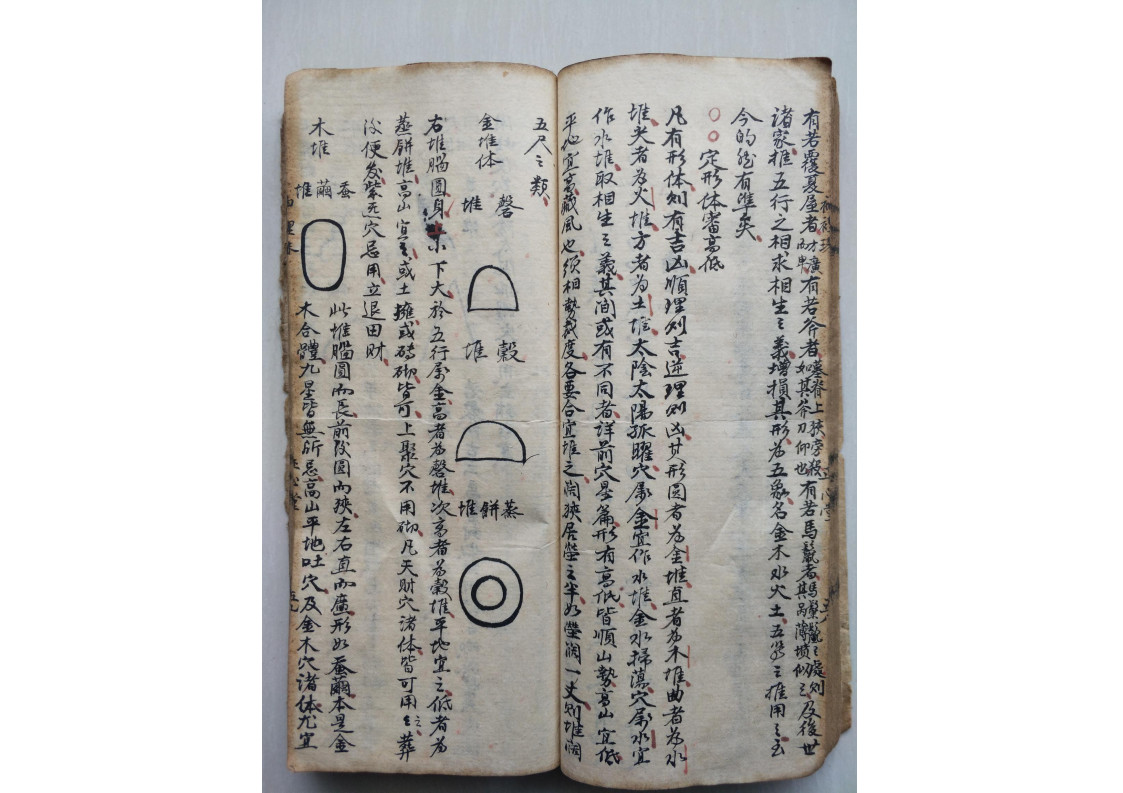 有若覆夏屋者旁廣而卑有若斧者墓脊上狹旁殺如其斧刃仰也有若馬鬣者馬鬃鬣之處則其肉薄墳似之及後世
諸家推五行之相求相生之義增損其形為五象名金木水火土五等之推用之至
今的然有準矣
○○定形体審高低
凡有形体則有吉凶順理則吉逆理則凶其形圆者为金堆直者为木堆曲者為水
堆尖者為火堆方者為土堆太陰太陽孤曜穴屬金宜作水堆金水掃蕩穴屬水宜
作水堆取相生之義其间或有不同者详前穴星篇形有高低皆順山勢高山宜低
平地宜高藏風也须相勢裁度各要合宜堆之阔狹居塋之半如塋阔一丈则堆阔
五尺之類
金堆体
磬堆
穀堆
蒸餅堆
右堆腦圆身小下大於五行屬金高者為磬堆次高者為穀堆平地宜之低者為
蒸餅堆高山宜之或土擁或砖砌皆可上聚穴不用砌凡天财穴诸体皆可用之葬
後便发紫迁穴忌用立退田财
木堆
蚕繭堆
此堆腦圆而長前後圆而狹左右直而廣形如蚕繭本是金
木合體九星皆無所忌高山平地吐穴及金木穴诸体尤宜